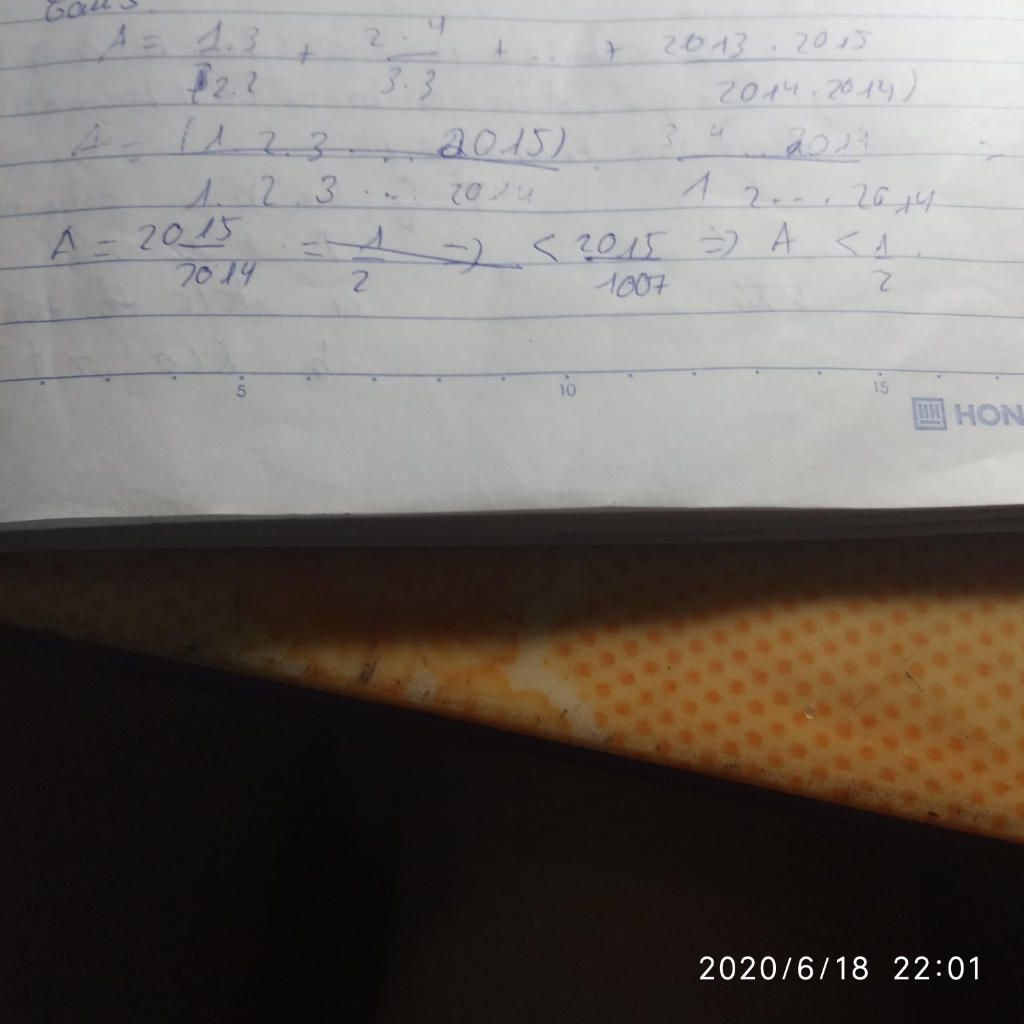 A = 1.3 / 2.2 + 2.4 / 3.3 + ... + 2013.2015 / 2014.2014)
A = (1.2.3....2015) / 1.2.3...2014 . 3.4...2014 / 1 2...2014 =
A = 2015 / 2014 = 1 / 2 => < 2015 / 1007 => A < 1 / 2.
5 10 15
HON
2020/6/18 22:01